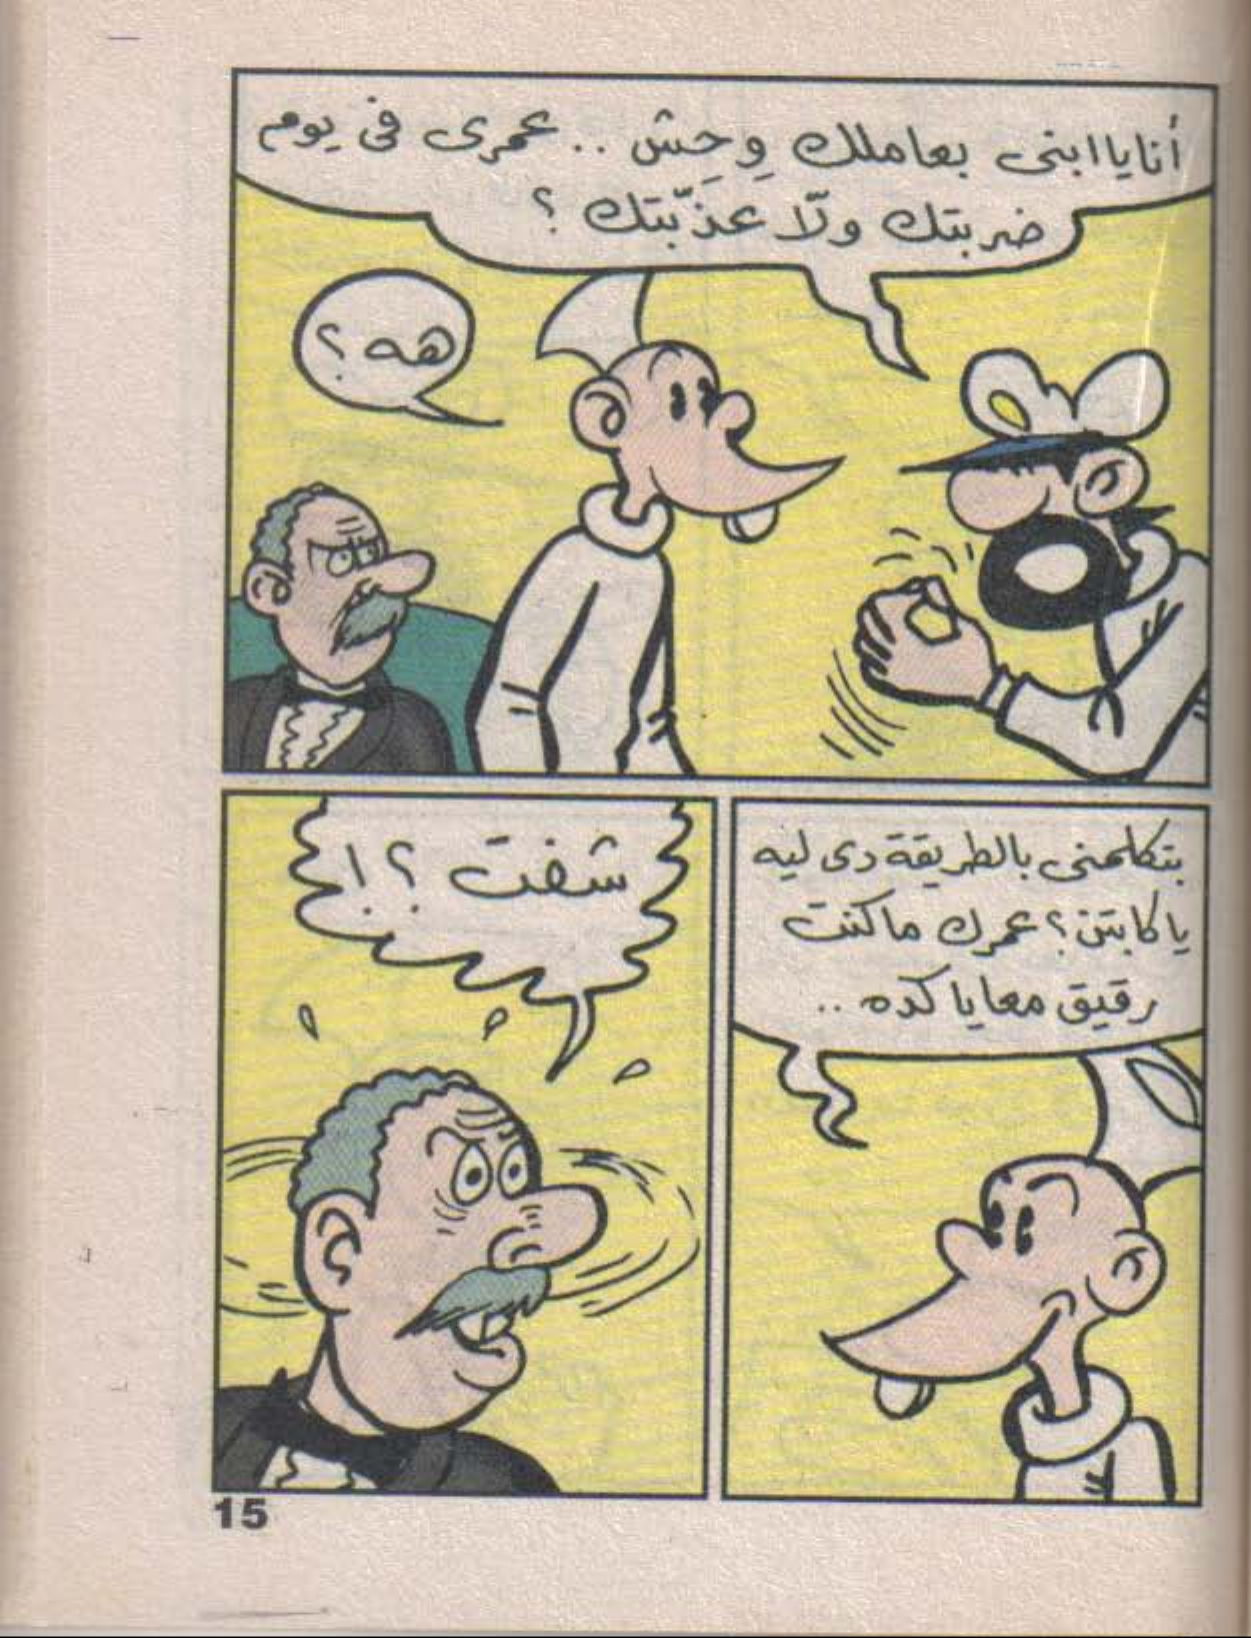 أنا يا ابنى بعاملك وِحِش .. عمرى فى يوم
ضربتك ولّا عذّبتك ؟
هه ؟
بتكلمنى بالطريقة دى ليه
يا كابتن ؟ عمرك ما كنت
رقيق معايا كده ..
شفت ؟!
15